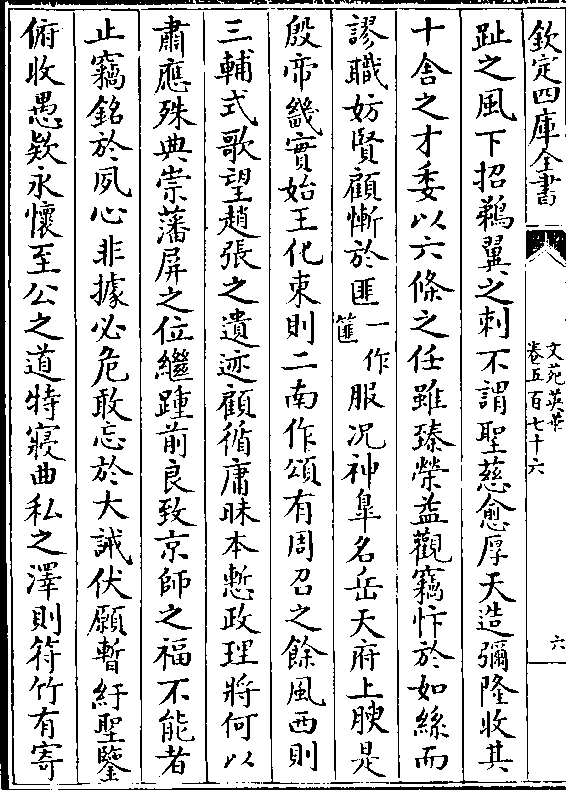 欽定四庫全書
文苑英華
卷五百七十六
六
趾之風下招鵜翼之刺不謂聖慈愈厚天造彌隆收其
十舍之才委以六條之任雖臻榮益觀竊忭於如絲而
謬職妨賢顧慚於匪一作篚服况神臯名岳天府上腴是
殷帝畿實始王化東則二南作頌有周召之餘風西則
三輔式歌望趙張之遺迹顧循庸昧本慙政理將何以
肅應殊典崇藩屏之位繼踵前良致京師之福不能者
止竊銘於夙心非據必危敢忘於大誡伏願暫紆聖鑒
俯收愚欵永懷至公之道特寢曲私之澤則符竹有寄